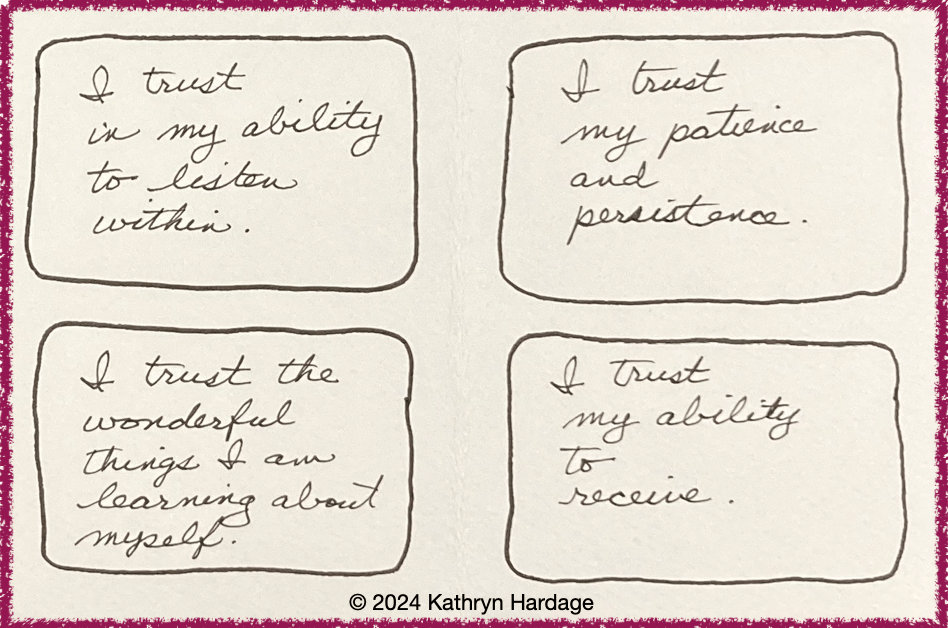 I trust
in my ability
to listen
within.
I trust
my patience
and
persistence.
I trust the
wonderful
things I am
learning about
myself.
I trust
my ability
to
receive.
© 2024 Kathryn Hardage